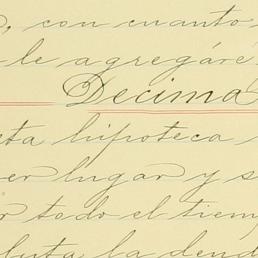 , con cuanto
le agregaré
Decima
eta hipoteca
er lugar y s
r todo el tiem
luta la deud